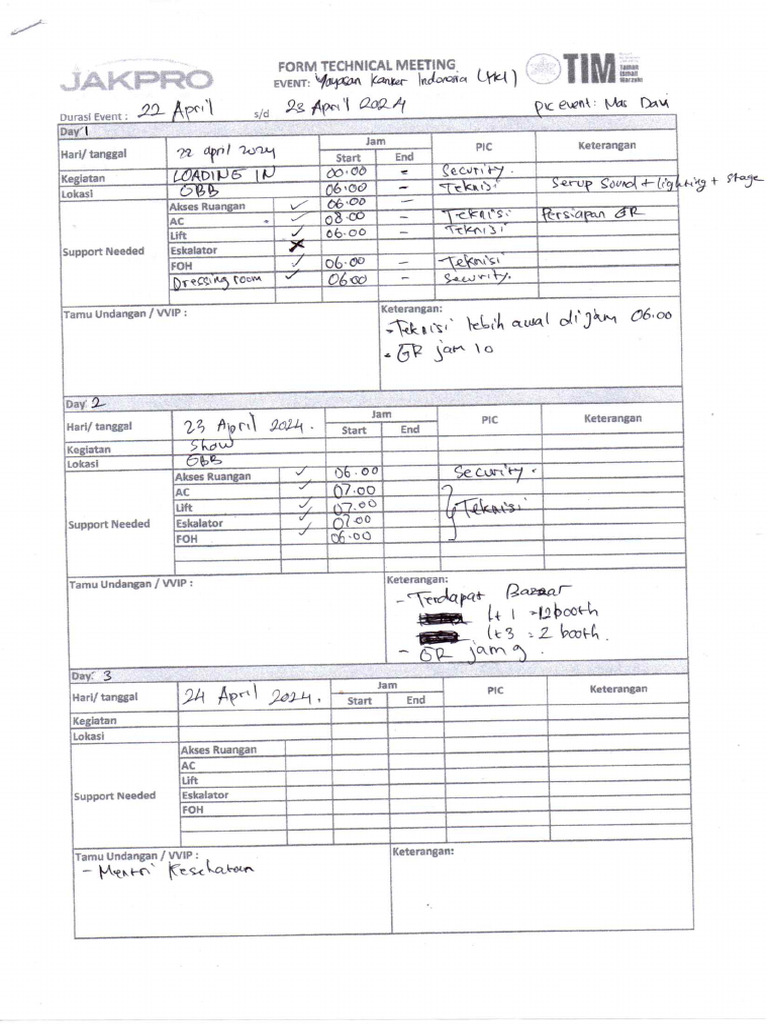 JAKPRO
FORM TECHNICAL MEETING
EVENT: Yayasan Kanker Indonesia (YKI)
TIM Taman Ismail Marzuki
Durasi Event : 22 April s/d 23 April 2024
PIC event: Mas Davi
Day 1
Hari/ tanggal 22 april 2024 Jam Start End PIC Keterangan
Kegiatan LOADING IN 00.00 - Security.
Lokasi GBB 06.00 - Teknisi Setup Sound + lighting + stage
Support Needed
Akses Ruangan ✓ 06.00 -
AC ✓ 08.00 - Teknisi Persiapan GR
Lift ✓ 06.00 - Teknisi
Eskalator ✗
FOH ✓ 06.00 - Teknisi
Dressing room ✓ 06.00 - Security.
Tamu Undangan / VVIP :
Keterangan:
- Teknisi lebih awal di jam 06.00
- GR jam 10
Day: 2
Hari/ tanggal 23 April 2024. Jam Start End PIC Keterangan
Kegiatan Show
Lokasi GBB
Support Needed
Akses Ruangan ✓ 06.00 Security.
AC ✓ 07.00
Lift ✓ 07.00 Teknisi
Eskalator ✓ 07.00
FOH ✓ 06.00
Tamu Undangan / VVIP :
Keterangan:
- Terdapat Bazaar
lt 1 = 12 booth
lt 3 = 2 booth.
- GR jam 9.
Day: 3
Hari/ tanggal 24 April 2024. Jam Start End PIC Keterangan
Kegiatan
Lokasi
Support Needed
Akses Ruangan
AC
Lift
Eskalator
FOH
Tamu Undangan / VVIP :
- Mentri Kesehatan
Keterangan: